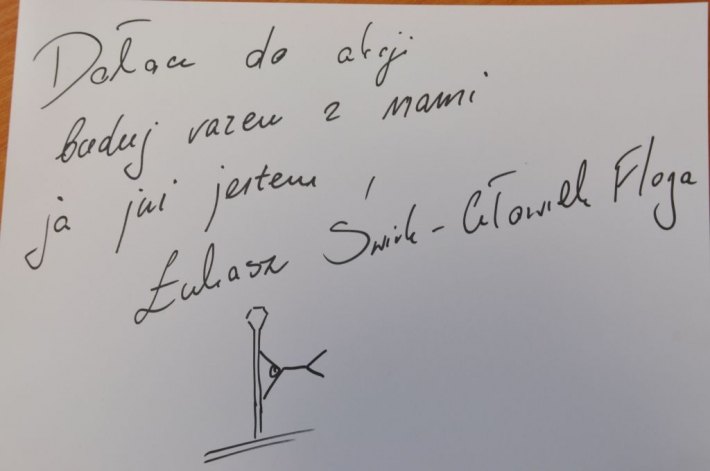 Dołącz do akcji
buduj razem z nami
ja już jestem
Łukasz Świrk - Człowiek Flaga